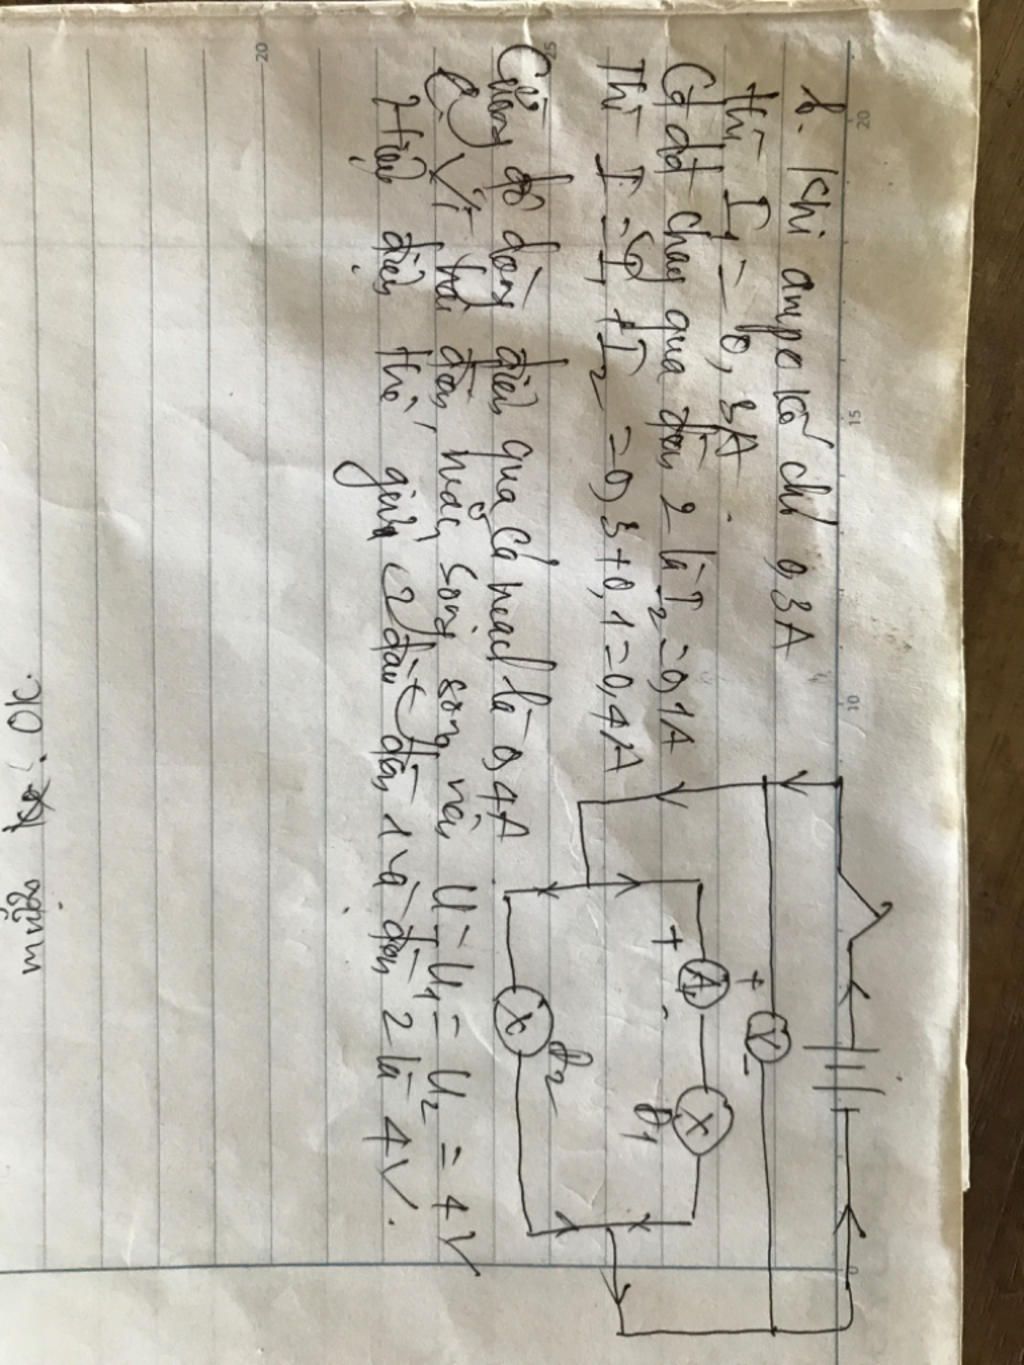 b. Khi ampe kế chỉ 0,3A
thì I₁ = 0,3A
Cđdđ chạy qua đèn 2 là I₂ = 0,1A
Thì I = I₁ + I₂ = 0,3 + 0,1 = 0,4A
Cường độ dòng điện qua cả mạch là 0,4A
c. Vì hai đèn mắc song song nên U = U₁ = U₂ = 4V
Hiệu điện thế giữa 2 đầu đèn 1 và đèn 2 là 4V.
+ V -
+ A₁ -
X Đ₁
X Đ₂
OK.
20
15
10
0
20
25